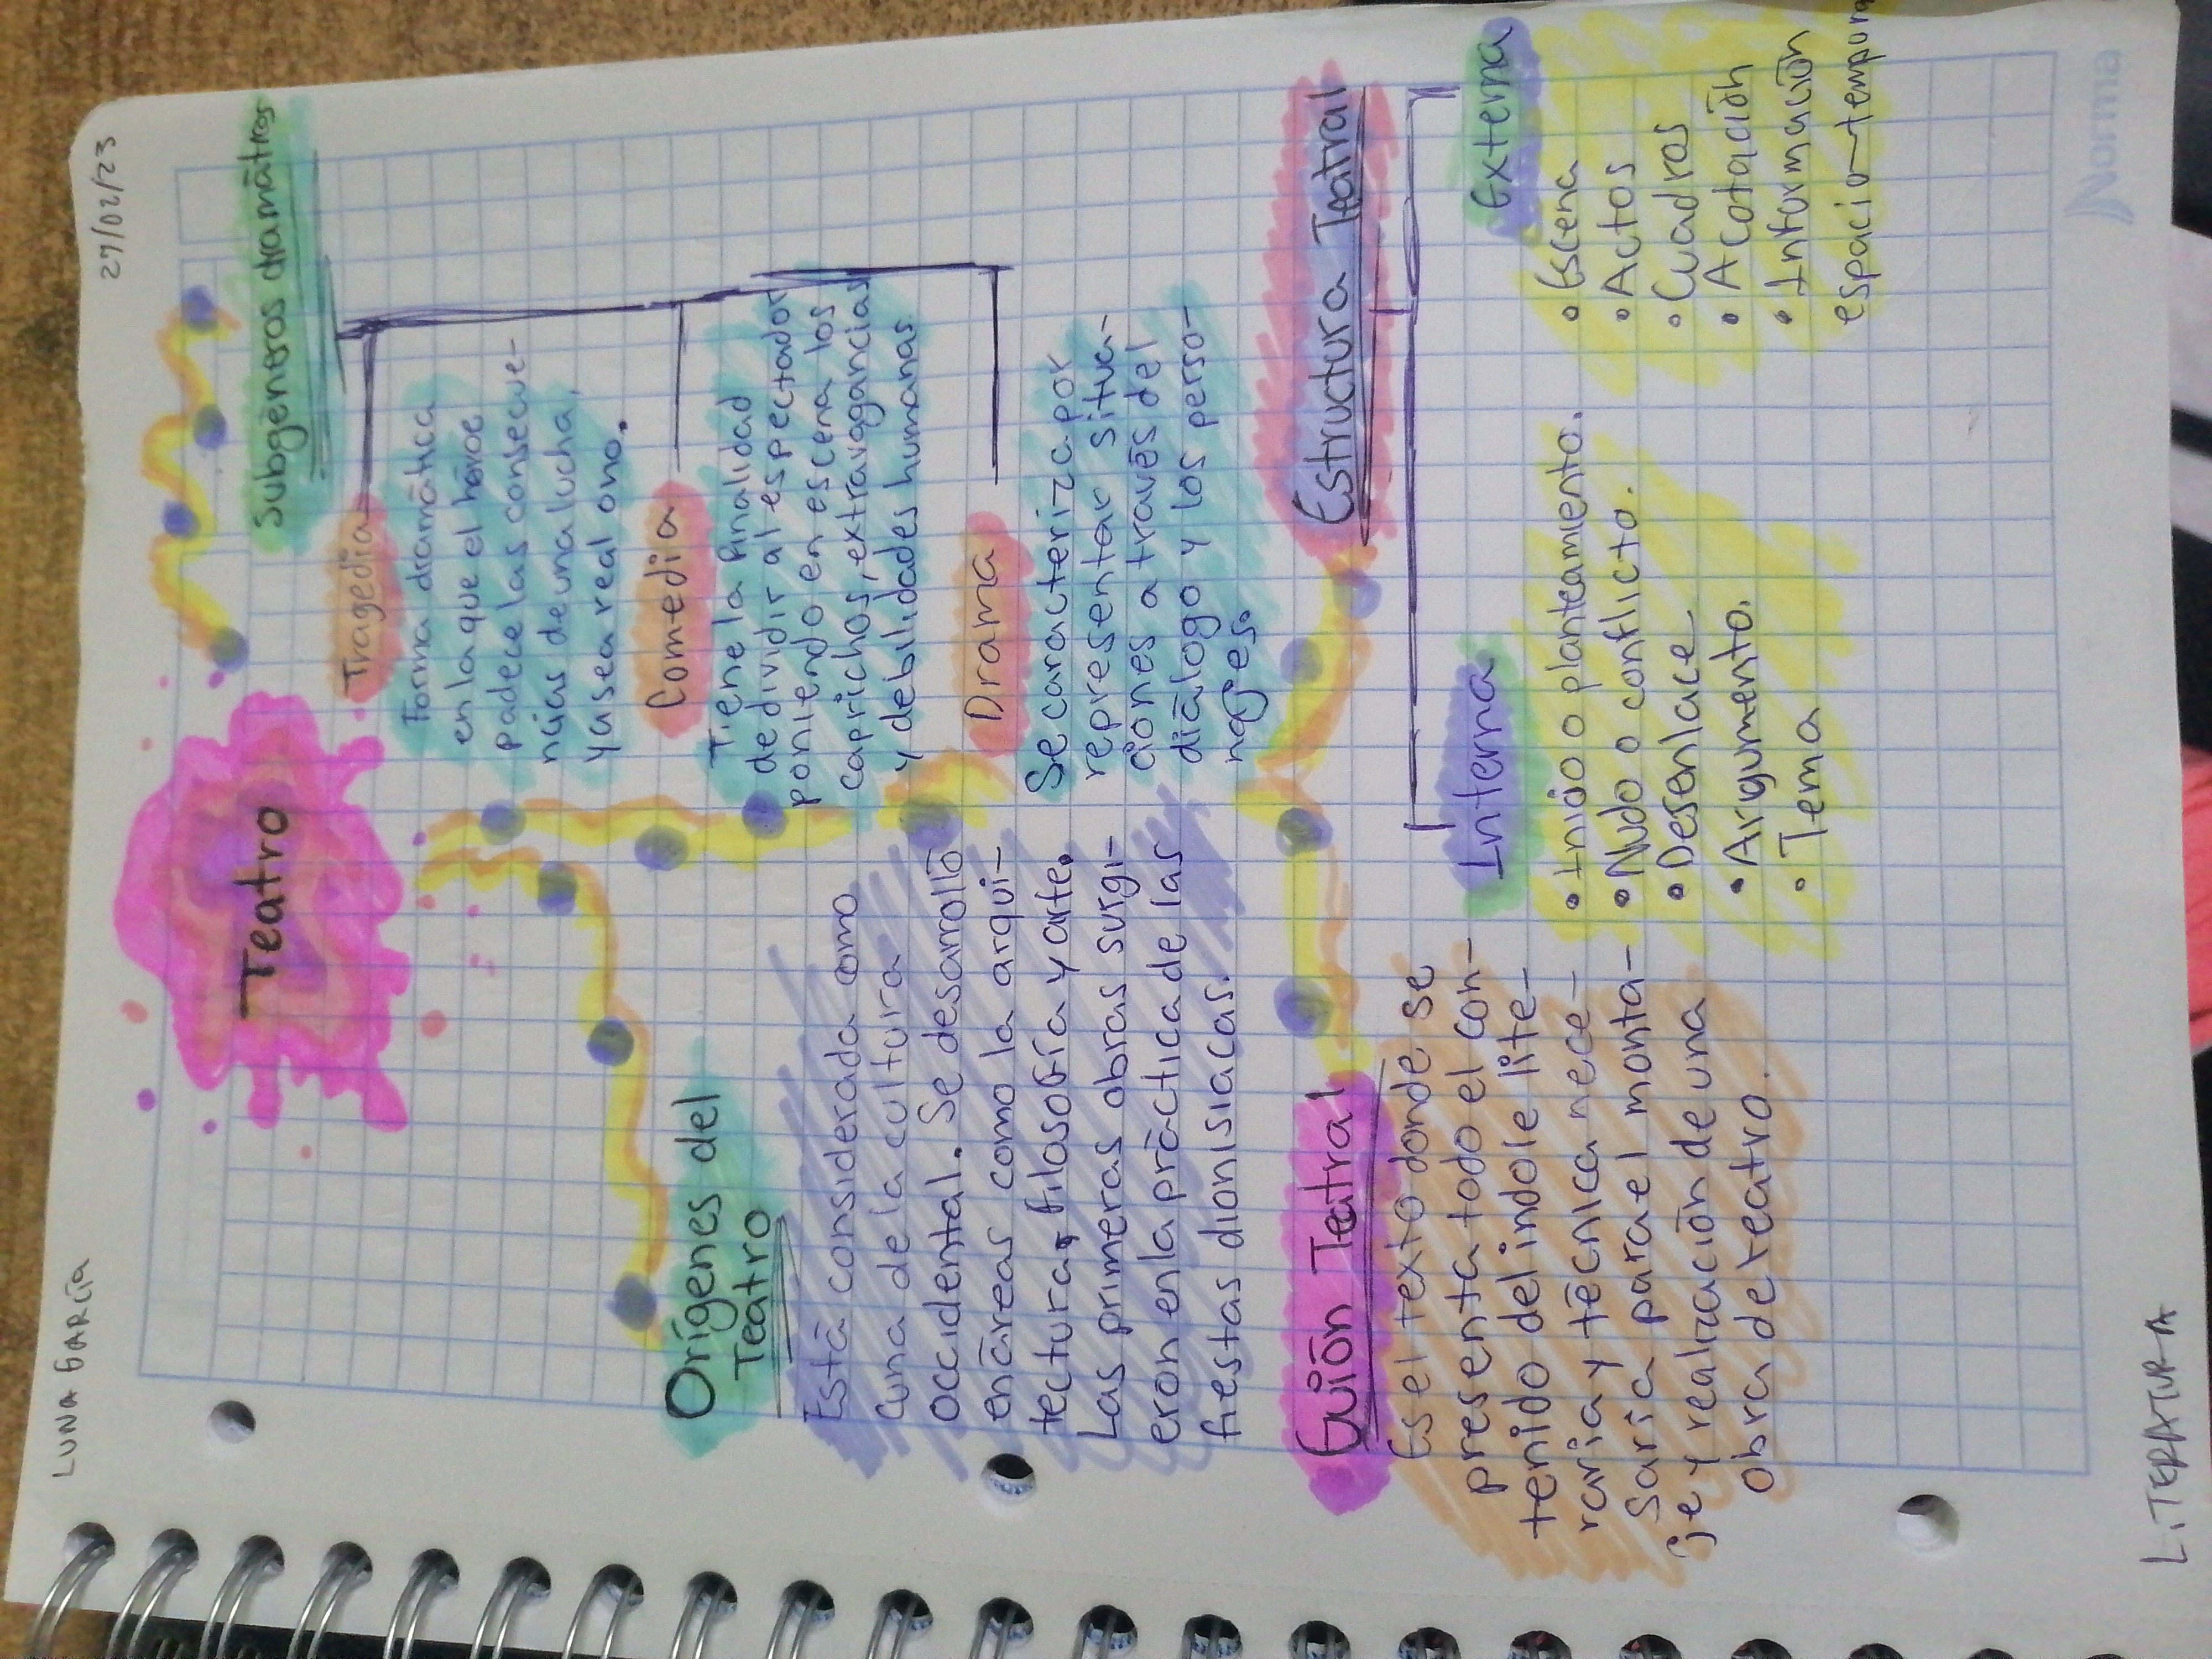 LUNA GARCÍA
27/02/23
Teatro
Orígenes del
Teatro
Está considerada como
cuna de la cultura
occidental. Se desarrolló
en áreas como la arqui-
tectura, filosofía y arte.
Las primeras obras surgi-
eron en la práctica de las
fiestas dionisiacas.
Subgéneros dramátros
Tragedia
Forma dramática
en la que el héroe
padece las consecue-
ncias de una lucha,
ya sea real o no.
Comedia
Tiene la finalidad
de dividir al espectador
poniendo en escena los
caprichos, extravagancias
y debilidades humanas
Drama
Se caracteriza por
representar situa-
ciones a través del
diálogo y los perso-
najes.
Guión Teatral
Es el texto donde se
presenta todo el con-
tenido del indole lite-
raria y técnica nece-
saria para el monta-
je y realización de una
obra de teatro.
Estructura Teatral
Interna
• Inicio o planteamiento.
• Nudo o conflicto.
• Desenlace
• Argumento.
• Tema
Externa
• Escena
• Actos
• Cuadros
• Acotación
• Información
espacio-tempora
LITERATURA
Norma